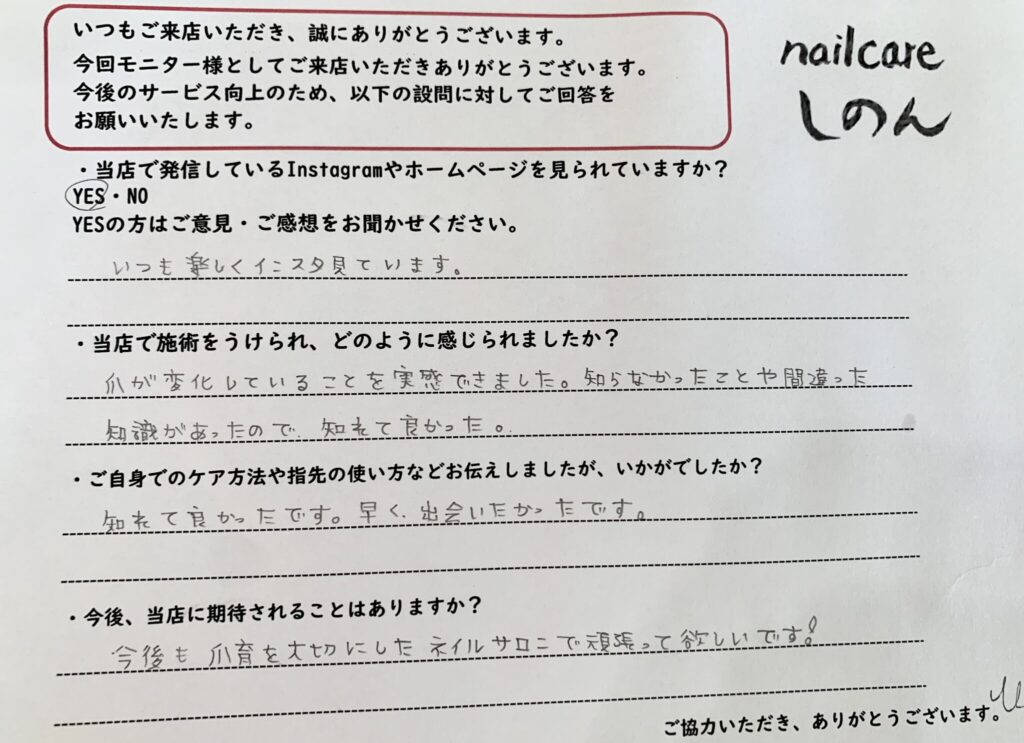 いつもご来店いただき、誠にありがとうございます。
今回モニター様としてご来店いただきありがとうございます。
今後のサービス向上のため、以下の設問に対してご回答を
お願いいたします。
nailcare
しのん
・当店で発信しているInstagramやホームページを見られていますか？
YES・NO
YESの方はご意見・ご感想をお聞かせください。
いつも楽しくインスタ見ています。
・当店で施術をうけられ、どのように感じられましたか？
爪が変化していることを実感できました。知らなかったことや間違った
知識があったので、知れて良かった。
・ご自身でのケア方法や指先の使い方などお伝えしましたが、いかがでしたか？
知れて良かったです。早く、出会いたかったです。
・今後、当店に期待されることはありますか？
今後も爪育を大切にしたネイルサロンで頑張って欲しいです!
ご協力いただき、ありがとうございます。